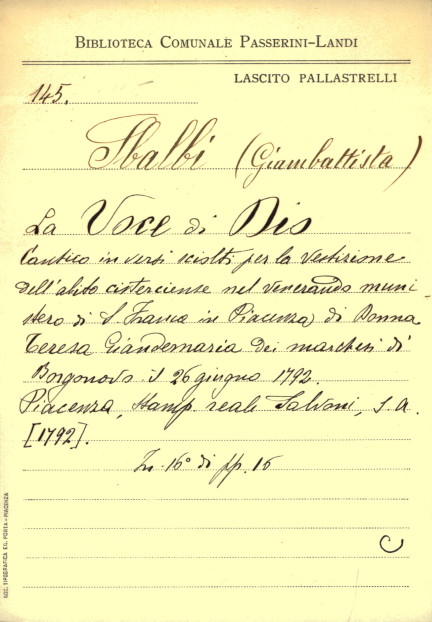 BIBLIOTECA COMUNALE PASSERINI-LANDI
LASCITO PALLASTRELLI
145.
Sbalbi (Giambattista)
La Voce di Dio
Cantico in versi sciolti per la vestizione
dell'abito cisterciense nel venerando muni
stero di S. Franca in Piacenza di Donna
Teresa Giandemaria dei marchesi di
Borgonovo il 26 giugno 1792.
Piacenza, stamp. reale Salvoni, s. a.
[1792].
In 16° di pp. 16
C
SOC. TIPOGRAFICA ED. PORTA - PIACENZA